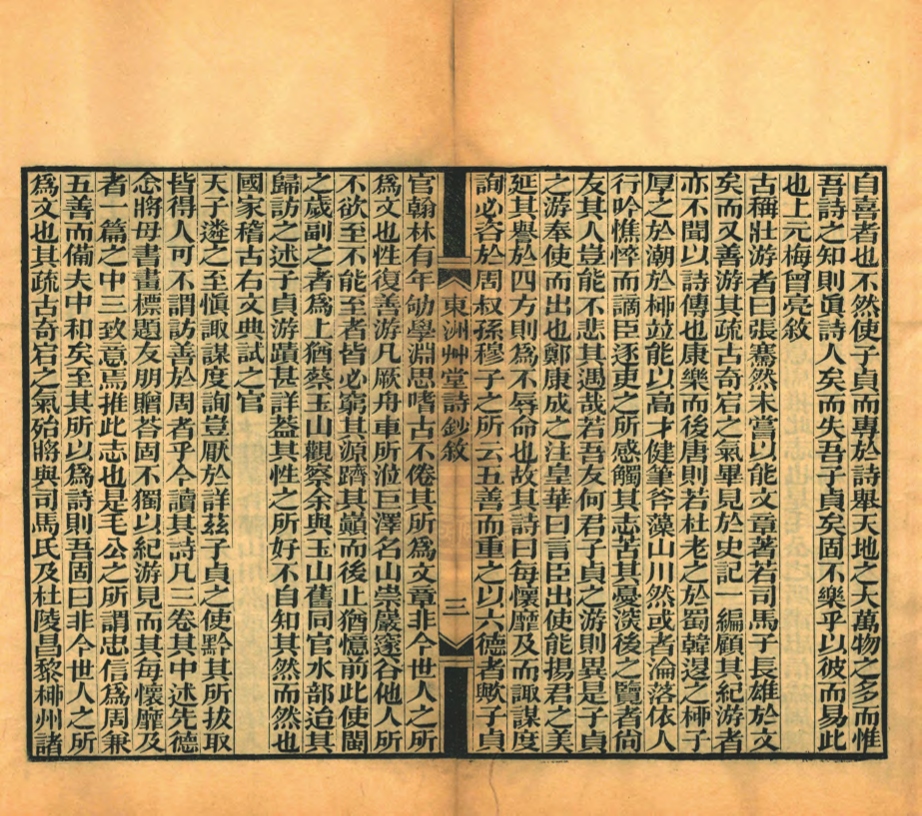 自喜者也不然使子貞而專於詩舉天地之大萬物之多而惟
吾詩之知則眞詩人矣而失吾子貞矣固不樂乎以彼而易此
也上元梅曾亮敘
古稱壯游者曰張騫然未嘗以能文章著若司馬子長雄於文
矣而又善游其疏古奇宕之氣畢見於史記一編顧其紀游者
亦不聞以詩傳也康樂而後唐則若杜老之於蜀韓退之柳子
厚之於潮於柳竝能以高才健筆咨藻山川然或者淪落依人
行吟憔悴而謫臣逐吏之所感觸其志苦其憂淡後之覽者尙
友其人豈能不悲其遇哉若吾友何君子貞之游則異是子貞
之游奉使而出也鄭康成之注皇華曰言臣出使能揚君之美
延其譽於四方則爲不辱命也故其詩曰每懷靡及而諏謀度
詢必咨於周叔孫穆子之所云五善而重之以六德者歟子貞
東洲艸堂詩鈔敘
三
官翰林有年劬學淵思嗜古不倦其所爲文章非今世人之所
爲文也性復善游凡厥舟車所涖巨澤名山崇巖邃谷他人所
不欲至不能至者皆必窮其源躋其巓而後止猶憶前此使閩
之歲副之者爲上猶蔡玉山觀察余與玉山舊同官水部迨其
歸訪之述子貞游蹟甚詳葢其性之所好不自知其然而然也
國家稽古右文典試之官
天子遴之至愼諏謀度詢豈厭於詳玆子貞之使黔其所拔取
皆得人可不謂訪善於周者乎今讀其詩凡三卷其中述先德
念將母書畫標題友朋贈荅固不獨以紀游見而其每懷靡及
者一篇之中三致意焉推此志也是毛公之所謂忠信爲周兼
五善而備夫中和矣至其所以爲詩則吾固曰非今世人之所
爲文也其疏古奇宕之氣殆將與司馬氏及杜陵昌黎柳州諸